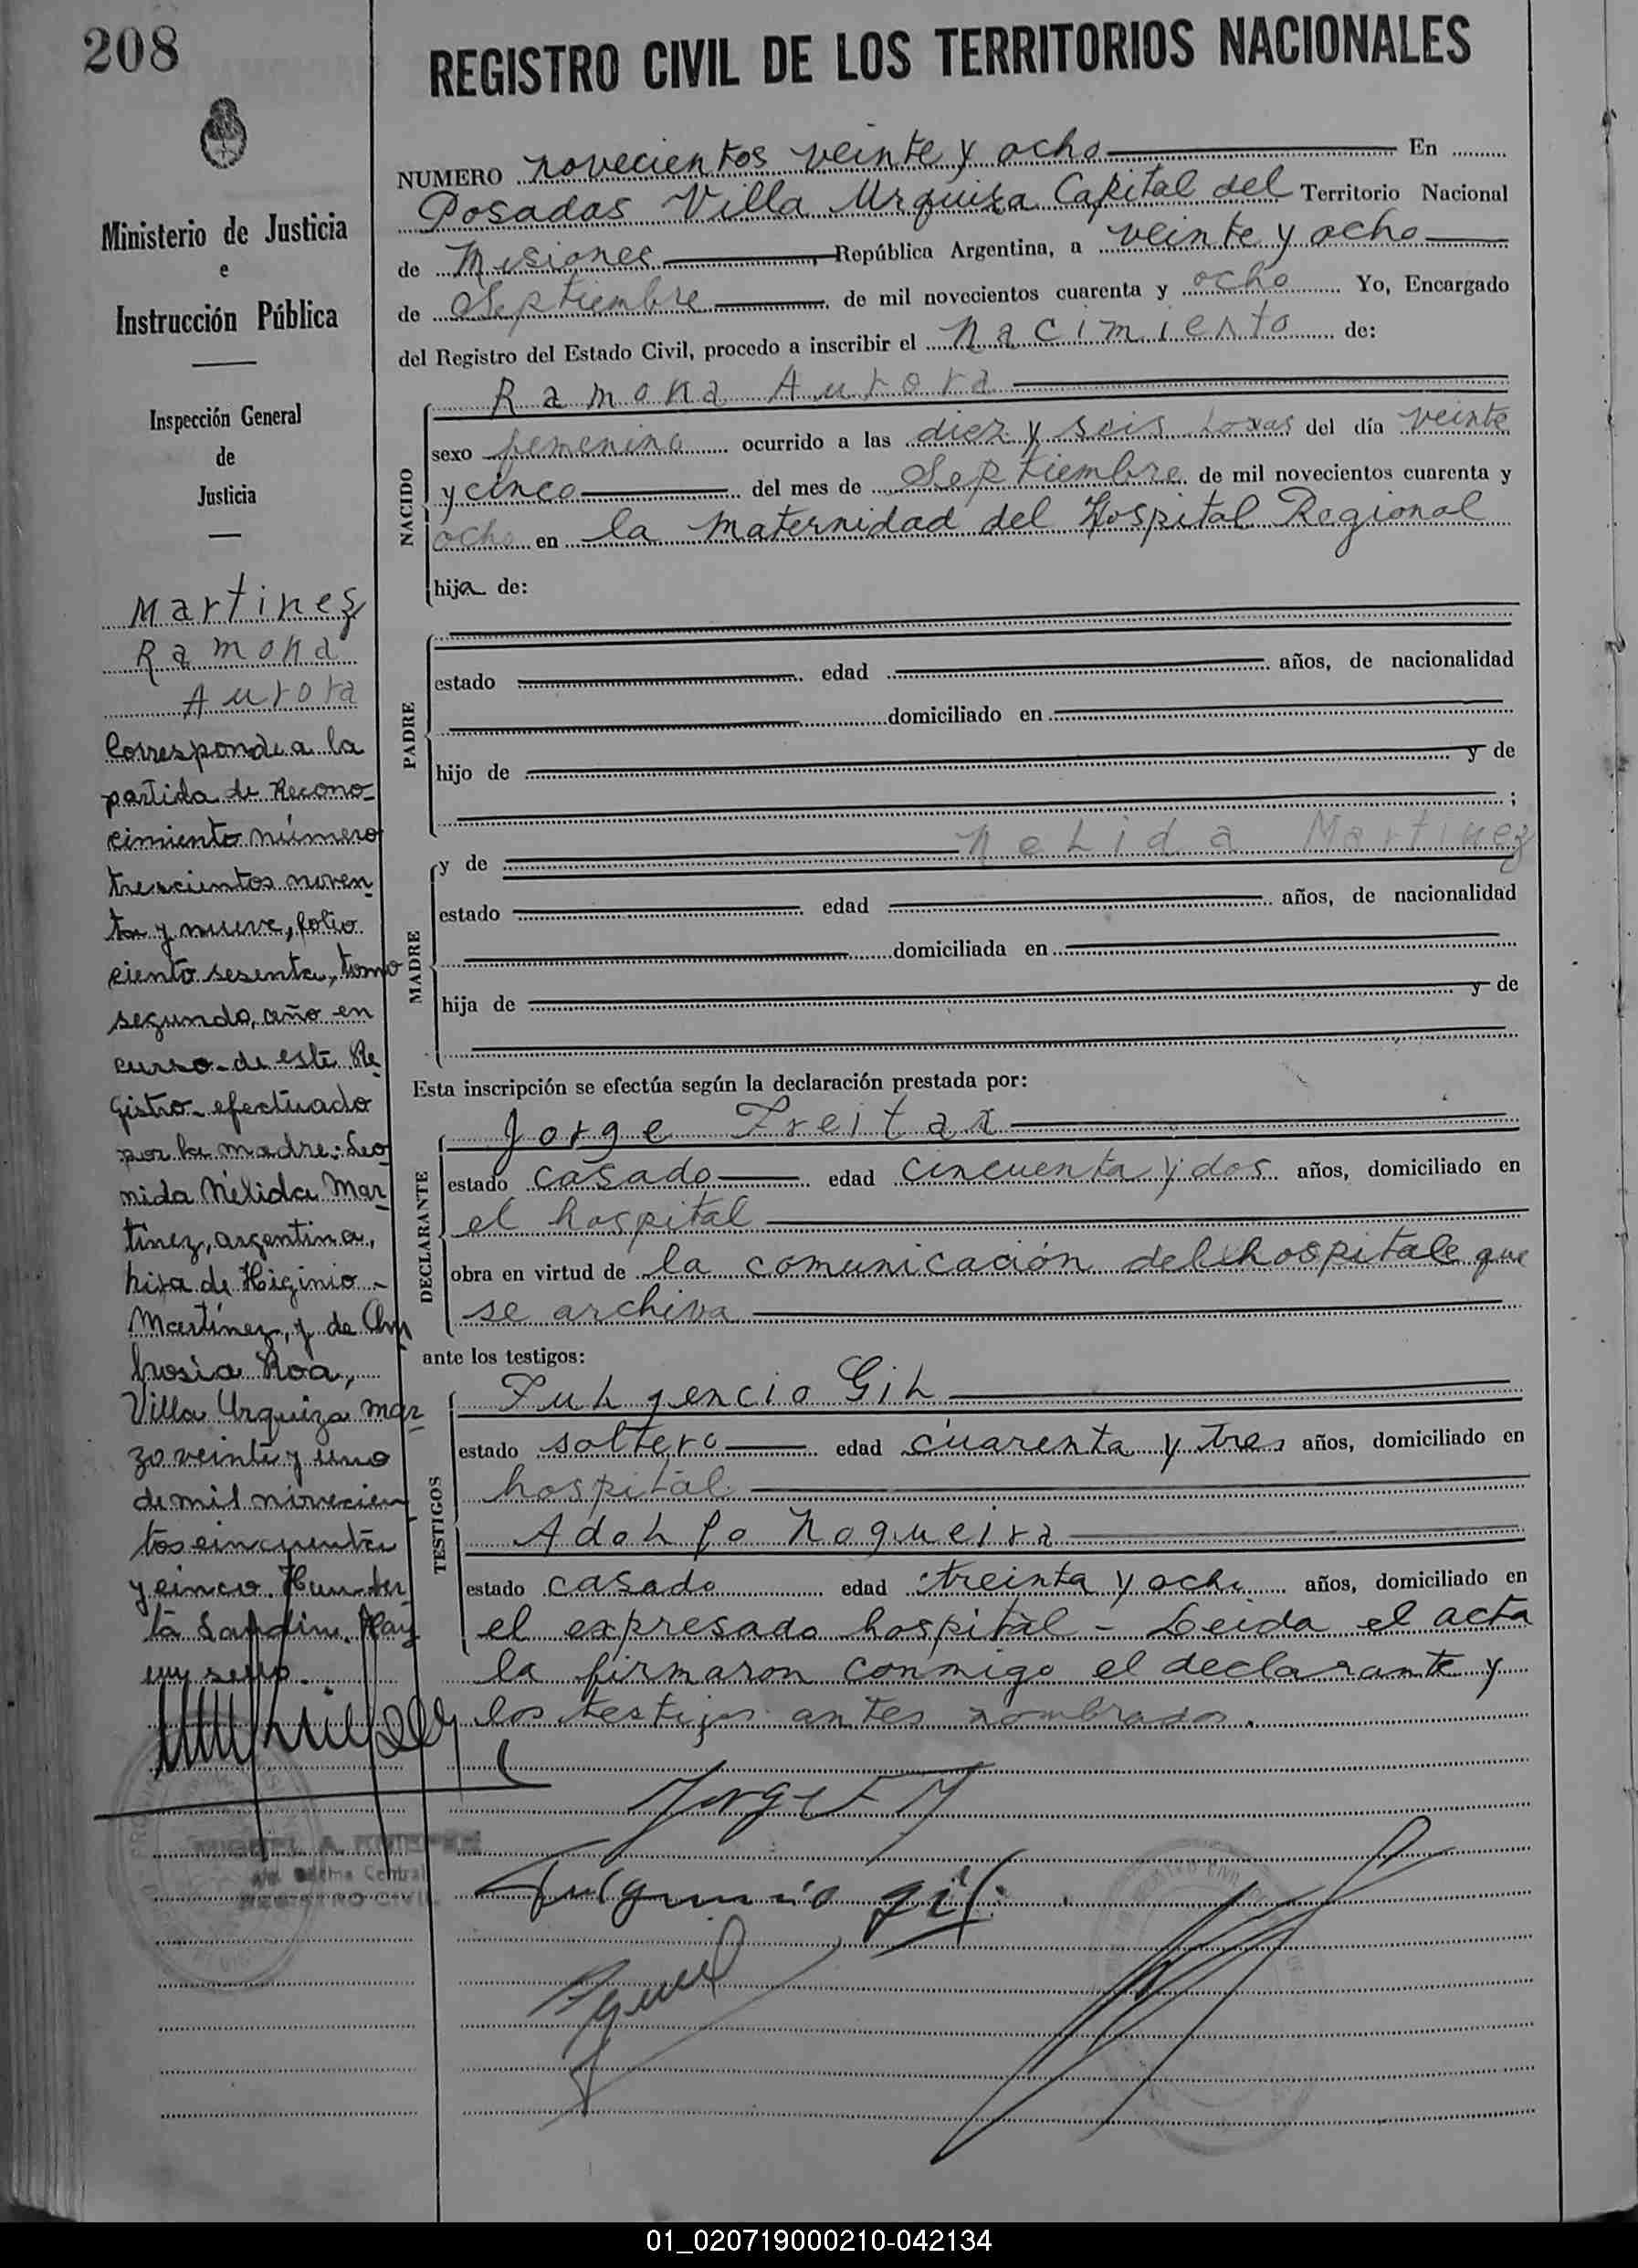 208
REGISTRO CIVIL DE LOS TERRITORIOS NACIONALES
Ministerio de Justicia
e
Instrucción Pública
Inspección General
de
Justicia
Martinez
Ramona
Aurora
Corresponde a la
partida de Recono-
cimiento número
trescientos noven-
ta y nueve, folio
ciento sesenta, tomo
segundo, año en
curso de este Re-
gistro efectuado
por la madre: Leo-
nida Nélida Mar-
tinez, argentina,
hija de Higinio
Martínez, y de Am
brosia Roa,
Villa Urquiza mar-
zo veinte y uno
de mil novecien-
tos cincuenta
y cinco.
Hay
un sello.
MIGUEL A.
Oficina Central
REGISTRO CIVIL
NUMERO novecientos veinte y ocho En
Posadas Villa Urquiza Capital del Territorio Nacional
de Misiones, República Argentina, a veinte y ocho
de Septiembre de mil novecientos cuarenta y ocho Yo, Encargado
del Registro del Estado Civil, procedo a inscribir el nacimiento de:
NACIDO
Ramona Aurora
sexo femenino ocurrido a las diez y seis horas del día veinte
y cinco del mes de Septiembre de mil novecientos cuarenta y
ocho en la Maternidad del Hospital Regional
hija de:
PADRE
estado edad años, de nacionalidad
domiciliado en
hijo de y de
;
MADRE
y de Nelida Martinez
estado edad años, de nacionalidad
domiciliada en
hija de y de
Esta inscripción se efectúa según la declaración prestada por:
DECLARANTE
Jorge Freitax
estado casado edad cincuenta y dos años, domiciliado en
el hospital
obra en virtud de la comunicación del hospital que
se archiva
ante los testigos:
TESTIGOS
Fulgencio Gil
estado soltero edad cuarenta y tres años, domiciliado en
hospital
Adolfo Nogueira
estado casado edad treinta y ocho años, domiciliado en
el expresado hospital - Leida el acta
la firmaron conmigo el declarante y
los testigos antes nombrados.
Fulgencio Gil
01_020719000210-042134